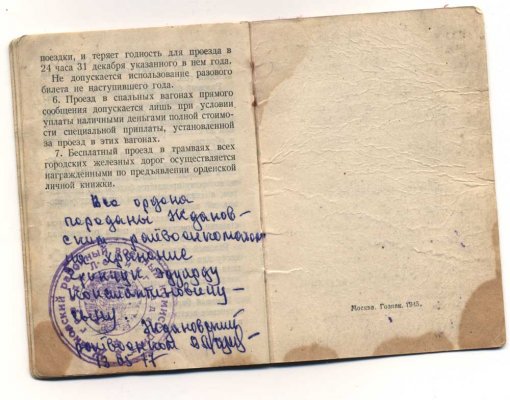 поездки, и теряет годность для проезда в
24 часа 31 декабря указанного в нем года.
Не допускается использование разового
билета не наступившего года.
6. Проезд в спальных вагонах прямого
сообщения допускается лишь при условии
уплаты наличными деньгами полной стоимо-
сти специальной приплаты, установленной
за проезд в этих вагонах.
7. Бесплатный проезд в трамваях всех
городских железных дорог осуществляется
награжденными по предъявлении орденской
личной книжки.
Все ордена
переданы Жданов-
ским райвоенкоматом
на хранение
Эдуарду
Константиновичу
сыну. Ждановский
райвоенком
Москва. Гознак. 1945.